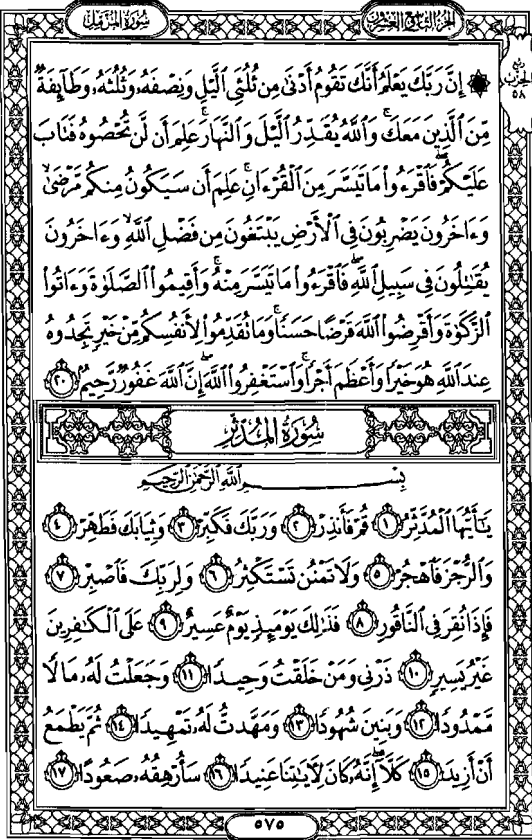 سورة المزمل
الجزء التاسع والعشرون
ربع
الحزب
٥٨
إِنَّ رَبَّكَ يَعْلَمُ أَنَّكَ تَقُومُ أَدْنَىٰ مِن ثُلُثَيِ ٱلَّيْلِ وَنِصْفَهُۥ وَثُلُثَهُۥ وَطَآئِفَةٌ
مِّنَ ٱلَّذِينَ مَعَكَ ۚ وَٱللَّهُ يُقَدِّرُ ٱلَّيْلَ وَٱلنَّهَارَ ۚ عَلِمَ أَن لَّن تُحْصُوهُ فَتَابَ
عَلَيْكُمْ ۖ فَٱقْرَءُوا۟ مَا تَيَسَّرَ مِنَ ٱلْقُرْءَانِ ۚ عَلِمَ أَن سَيَكُونُ مِنكُم مَّرْضَىٰ ۙ
وَءَاخَرُونَ يَضْرِبُونَ فِى ٱلْأَرْضِ يَبْتَغُونَ مِن فَضْلِ ٱللَّهِ ۙ وَءَاخَرُونَ
يُقَـٰتِلُونَ فِى سَبِيلِ ٱللَّهِ ۖ فَٱقْرَءُوا۟ مَا تَيَسَّرَ مِنْهُ ۚ وَأَقِيمُوا۟ ٱلصَّلَوٰةَ وَءَاتُوا۟
ٱلزَّكَوٰةَ وَأَقْرِضُوا۟ ٱللَّهَ قَرْضًا حَسَنًا ۚ وَمَا تُقَدِّمُوا۟ لِأَنفُسِكُم مِّنْ خَيْرٍ تَجِدُوهُ
عِندَ ٱللَّهِ هُوَ خَيْرًا وَأَعْظَمَ أَجْرًا ۚ وَٱسْتَغْفِرُوا۟ ٱللَّهَ ۖ إِنَّ ٱللَّهَ غَفُورٌ رَّحِيمٌۢ ٢٠
سُورَةُ المُدَّثِّرِ
بِسْمِ ٱللَّهِ ٱلرَّحْمَـٰنِ ٱلرَّحِيمِ
يَـٰٓأَيُّهَا ٱلْمُدَّثِّرُ ١ قُمْ فَأَنذِرْ ٢ وَرَبَّكَ فَكَبِّرْ ٣ وَثِيَابَكَ فَطَهِّرْ ٤
وَٱلرُّجْزَ فَٱهْجُرْ ٥ وَلَا تَمْنُن تَسْتَكْثِرُ ٦ وَلِرَبِّكَ فَٱصْبِرْ ٧
فَإِذَا نُقِرَ فِى ٱلنَّاقُورِ ٨ فَذَٰلِكَ يَوْمَئِذٍ يَوْمٌ عَسِيرٌ ٩ عَلَى ٱلْكَـٰفِرِينَ
غَيْرُ يَسِيرٍ ١٠ ذَرْنِى وَمَنْ خَلَقْتُ وَحِيدًا ١١ وَجَعَلْتُ لَهُۥ مَالًا
مَّمْدُودًا ١٢ وَبَنِينَ شُهُودًا ١٣ وَمَهَّدتُّ لَهُۥ تَمْهِيدًا ١٤ ثُمَّ يَطْمَعُ
أَنْ أَزِيدَ ١٥ كَلَّآ ۖ إِنَّهُۥ كَانَ لِـَٔايَـٰتِنَا عَنِيدًا ١٦ سَأُرْهِقُهُۥ صَعُودًا ١٧
٥٧٥